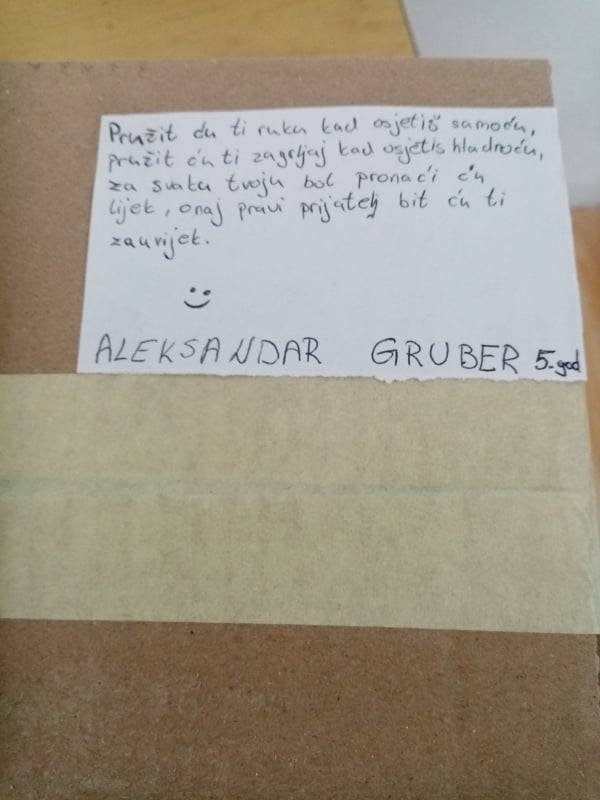 Pružit ću ti ruku kad osjetiš samoću,
pružit ću ti zagrljaj kad osjetis hladnoću,
za svaku tvoju bol pronaći ću
lijek, onaj pravi prijatelj bit ću ti
zauvijek.
ALEKSANDAR GRUBER 5.god